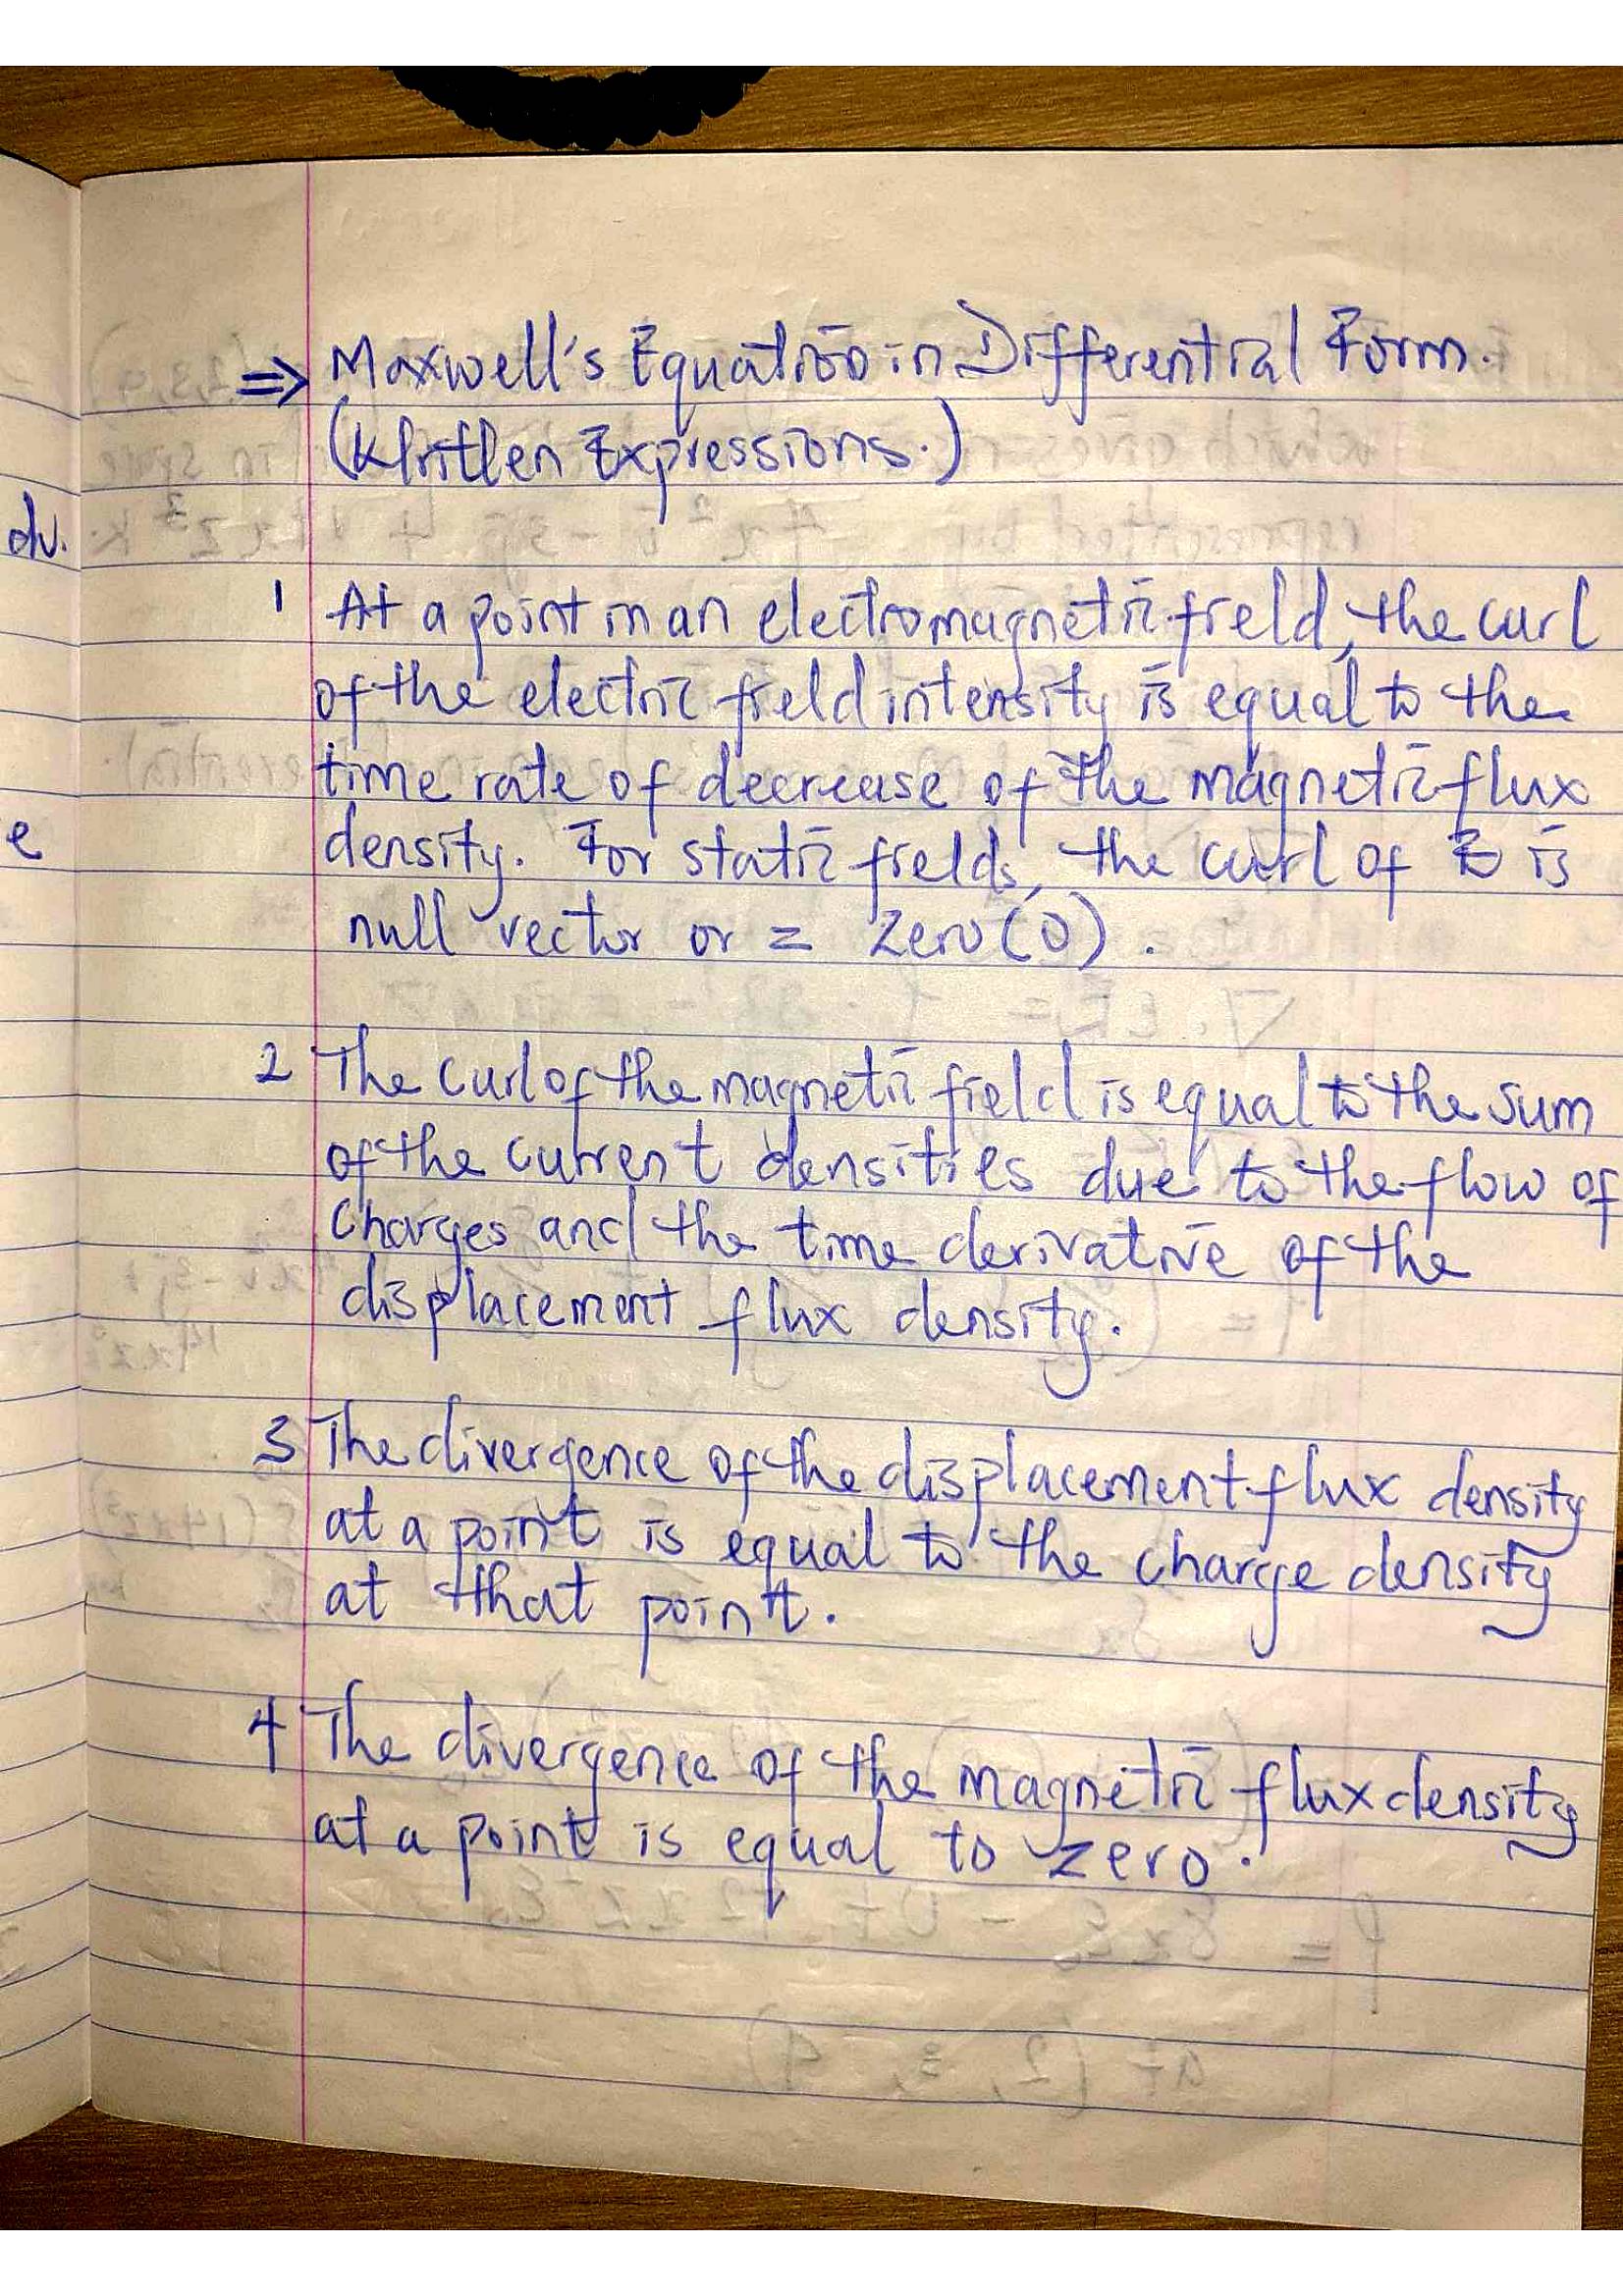 ⇒ Maxwell's Equation in Differential Form.
(Written Expressions.)
dv.
1 At a point in an electromagnetic field, the curl
of the electric field intensity is equal to the
time rate of decrease of the magnetic flux
e density. For static fields, the curl of E is
null vector or = zero (0).
2 The curl of the magnetic field is equal to the sum
of the current densities due to the flow of
charges and the time derivative of the
displacement flux density.
3 The divergence of the displacement flux density
at a point is equal to the charge density
at that point.
4 The divergence of the magnetic flux density
at a point is equal to zero.